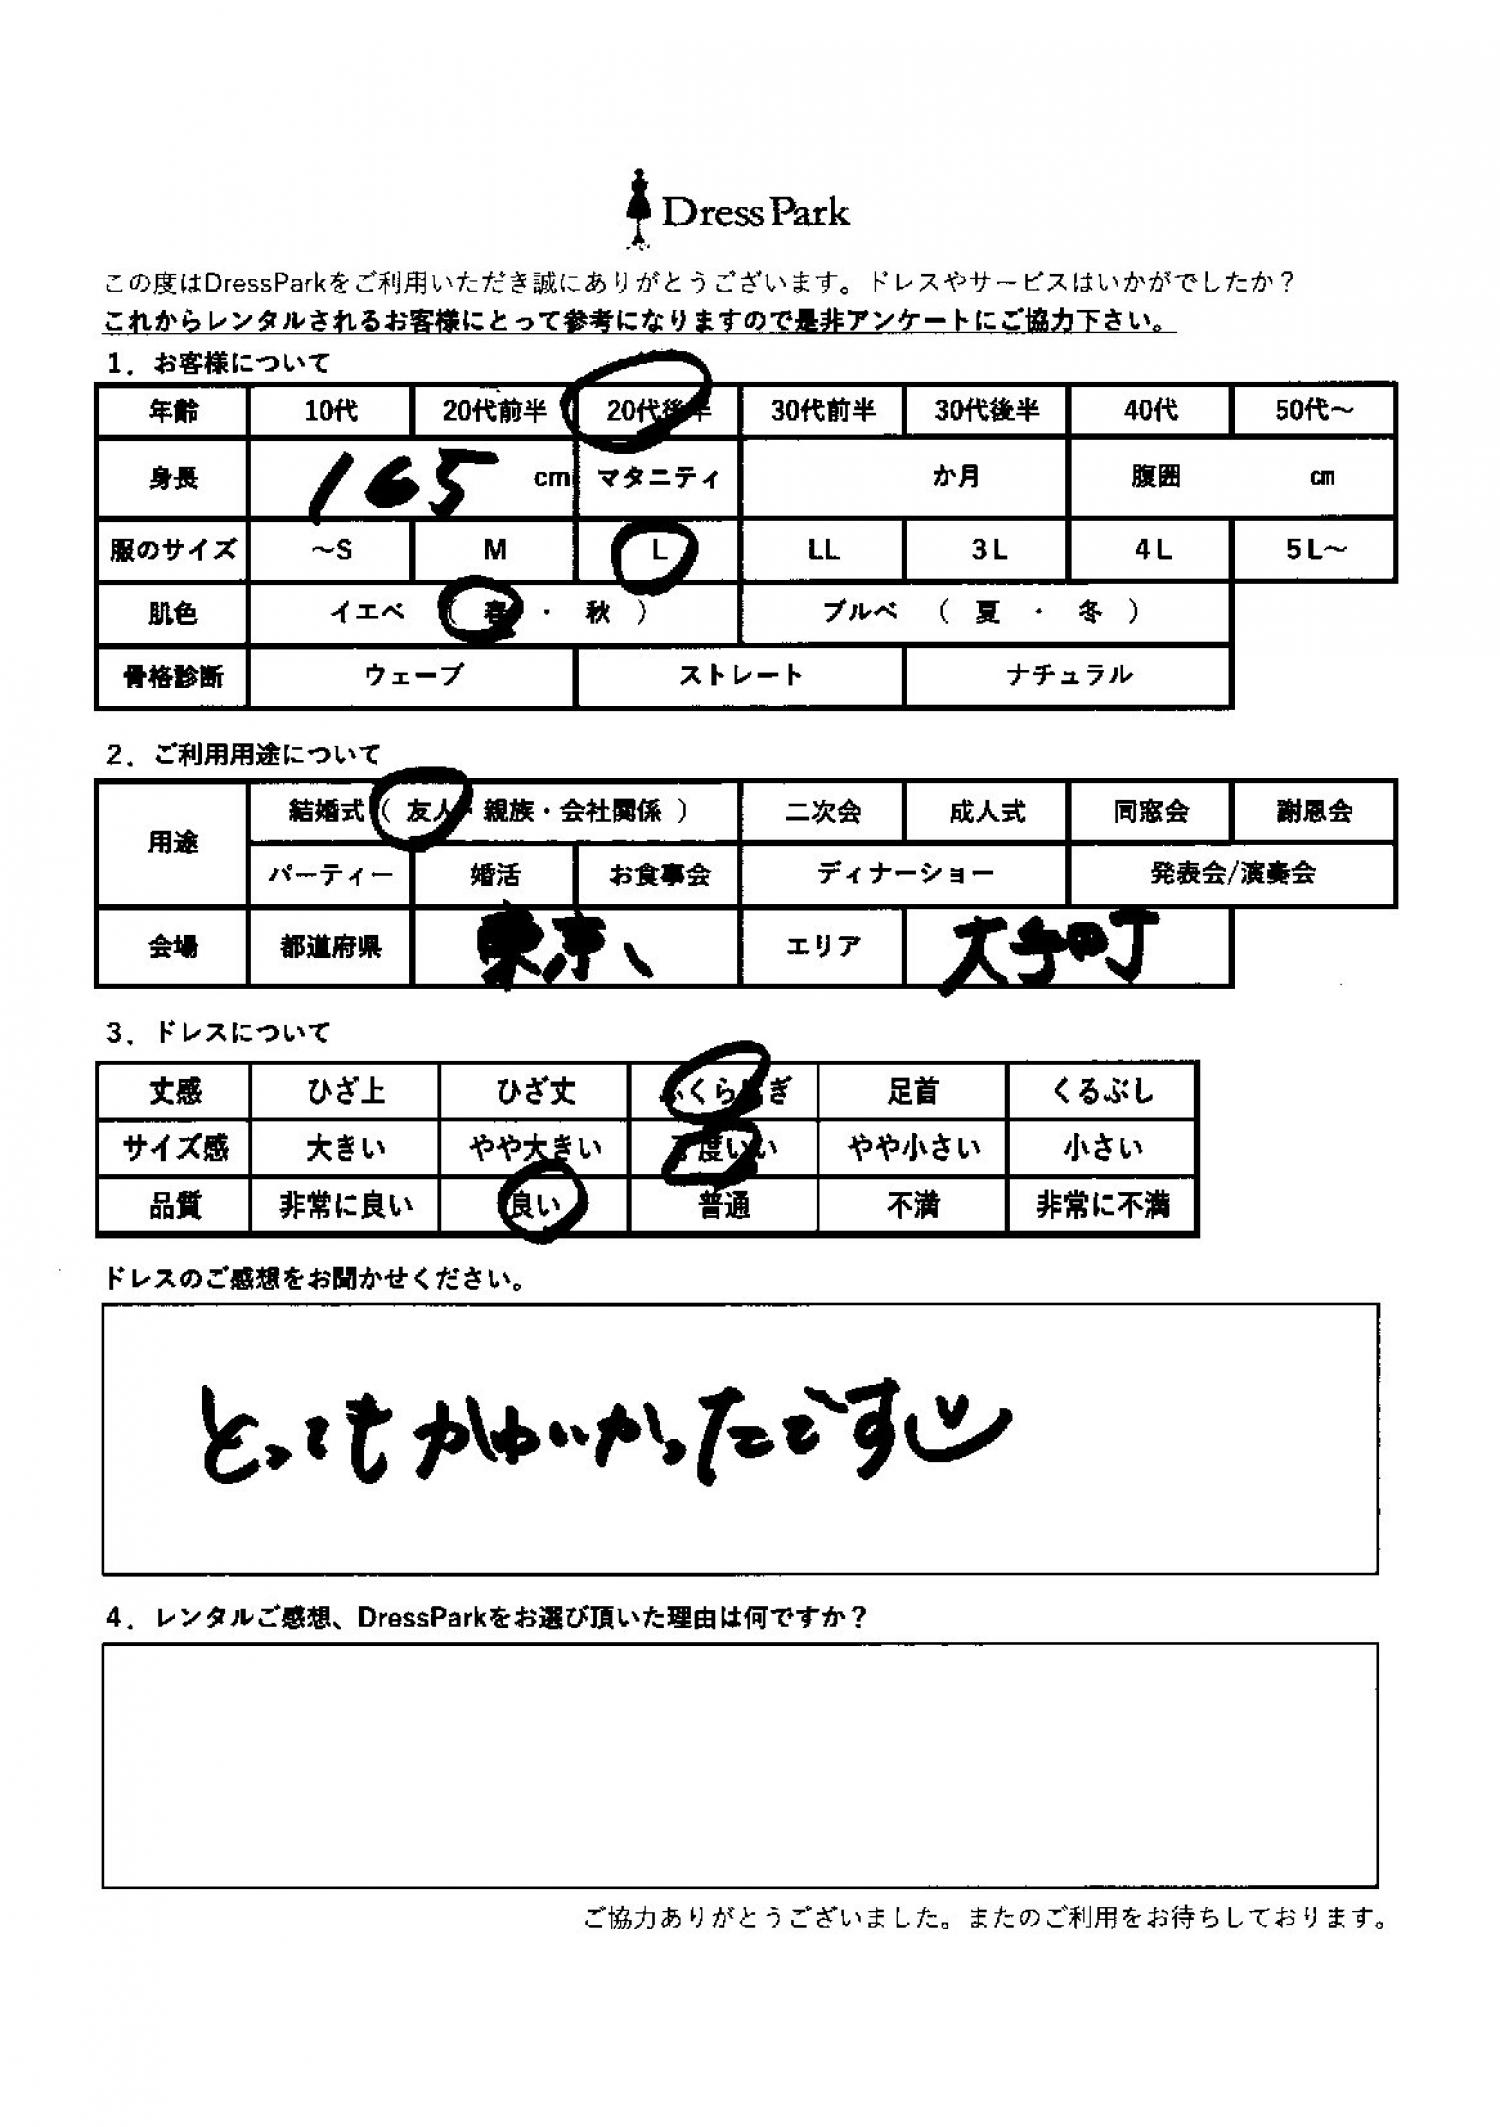 Dress Park
この度はDressParkをご利用いただき誠にありがとうございます。ドレスやサービスはいかがでしたか？
これからレンタルされるお客様にとって参考になりますので是非アンケートにご協力下さい。
1．お客様について
年齢 10代 20代前半 20代後半 30代前半 30代後半 40代 50代～
身長 165 cm マタニティ か月 腹囲 cm
服のサイズ ～S M L LL 3L 4L 5L～
肌色 イエベ （ 春 ・ 秋 ） ブルベ （ 夏 ・ 冬 ）
骨格診断 ウェーブ ストレート ナチュラル
2．ご利用用途について
用途 結婚式（ 友人・親族・会社関係 ） 二次会 成人式 同窓会 謝恩会
パーティー 婚活 お食事会 ディナーショー 発表会/演奏会
会場 都道府県 東京、 エリア 大手町
3．ドレスについて
丈感 ひざ上 ひざ丈 ふくらはぎ 足首 くるぶし
サイズ感 大きい やや大きい 丁度いい やや小さい 小さい
品質 非常に良い 良い 普通 不満 非常に不満
ドレスのご感想をお聞かせください。
とってもかわいかったです
4．レンタルご感想、DressParkをお選び頂いた理由は何ですか？
ご協力ありがとうございました。またのご利用をお待ちしております。